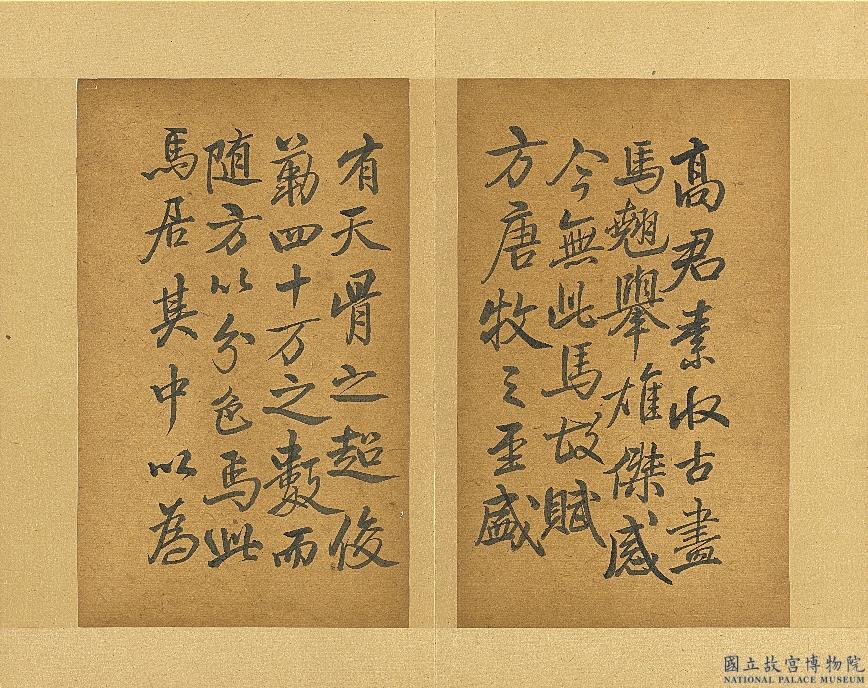 高君素收古畫
馬翹舉雄傑感
今無此馬故賦
方唐牧之至盛
有天骨之超俊
勒四十万之數而
随方以分色焉此
馬居其中以為
國立故宮博物院
NATIONAL PALACE MUSEUM